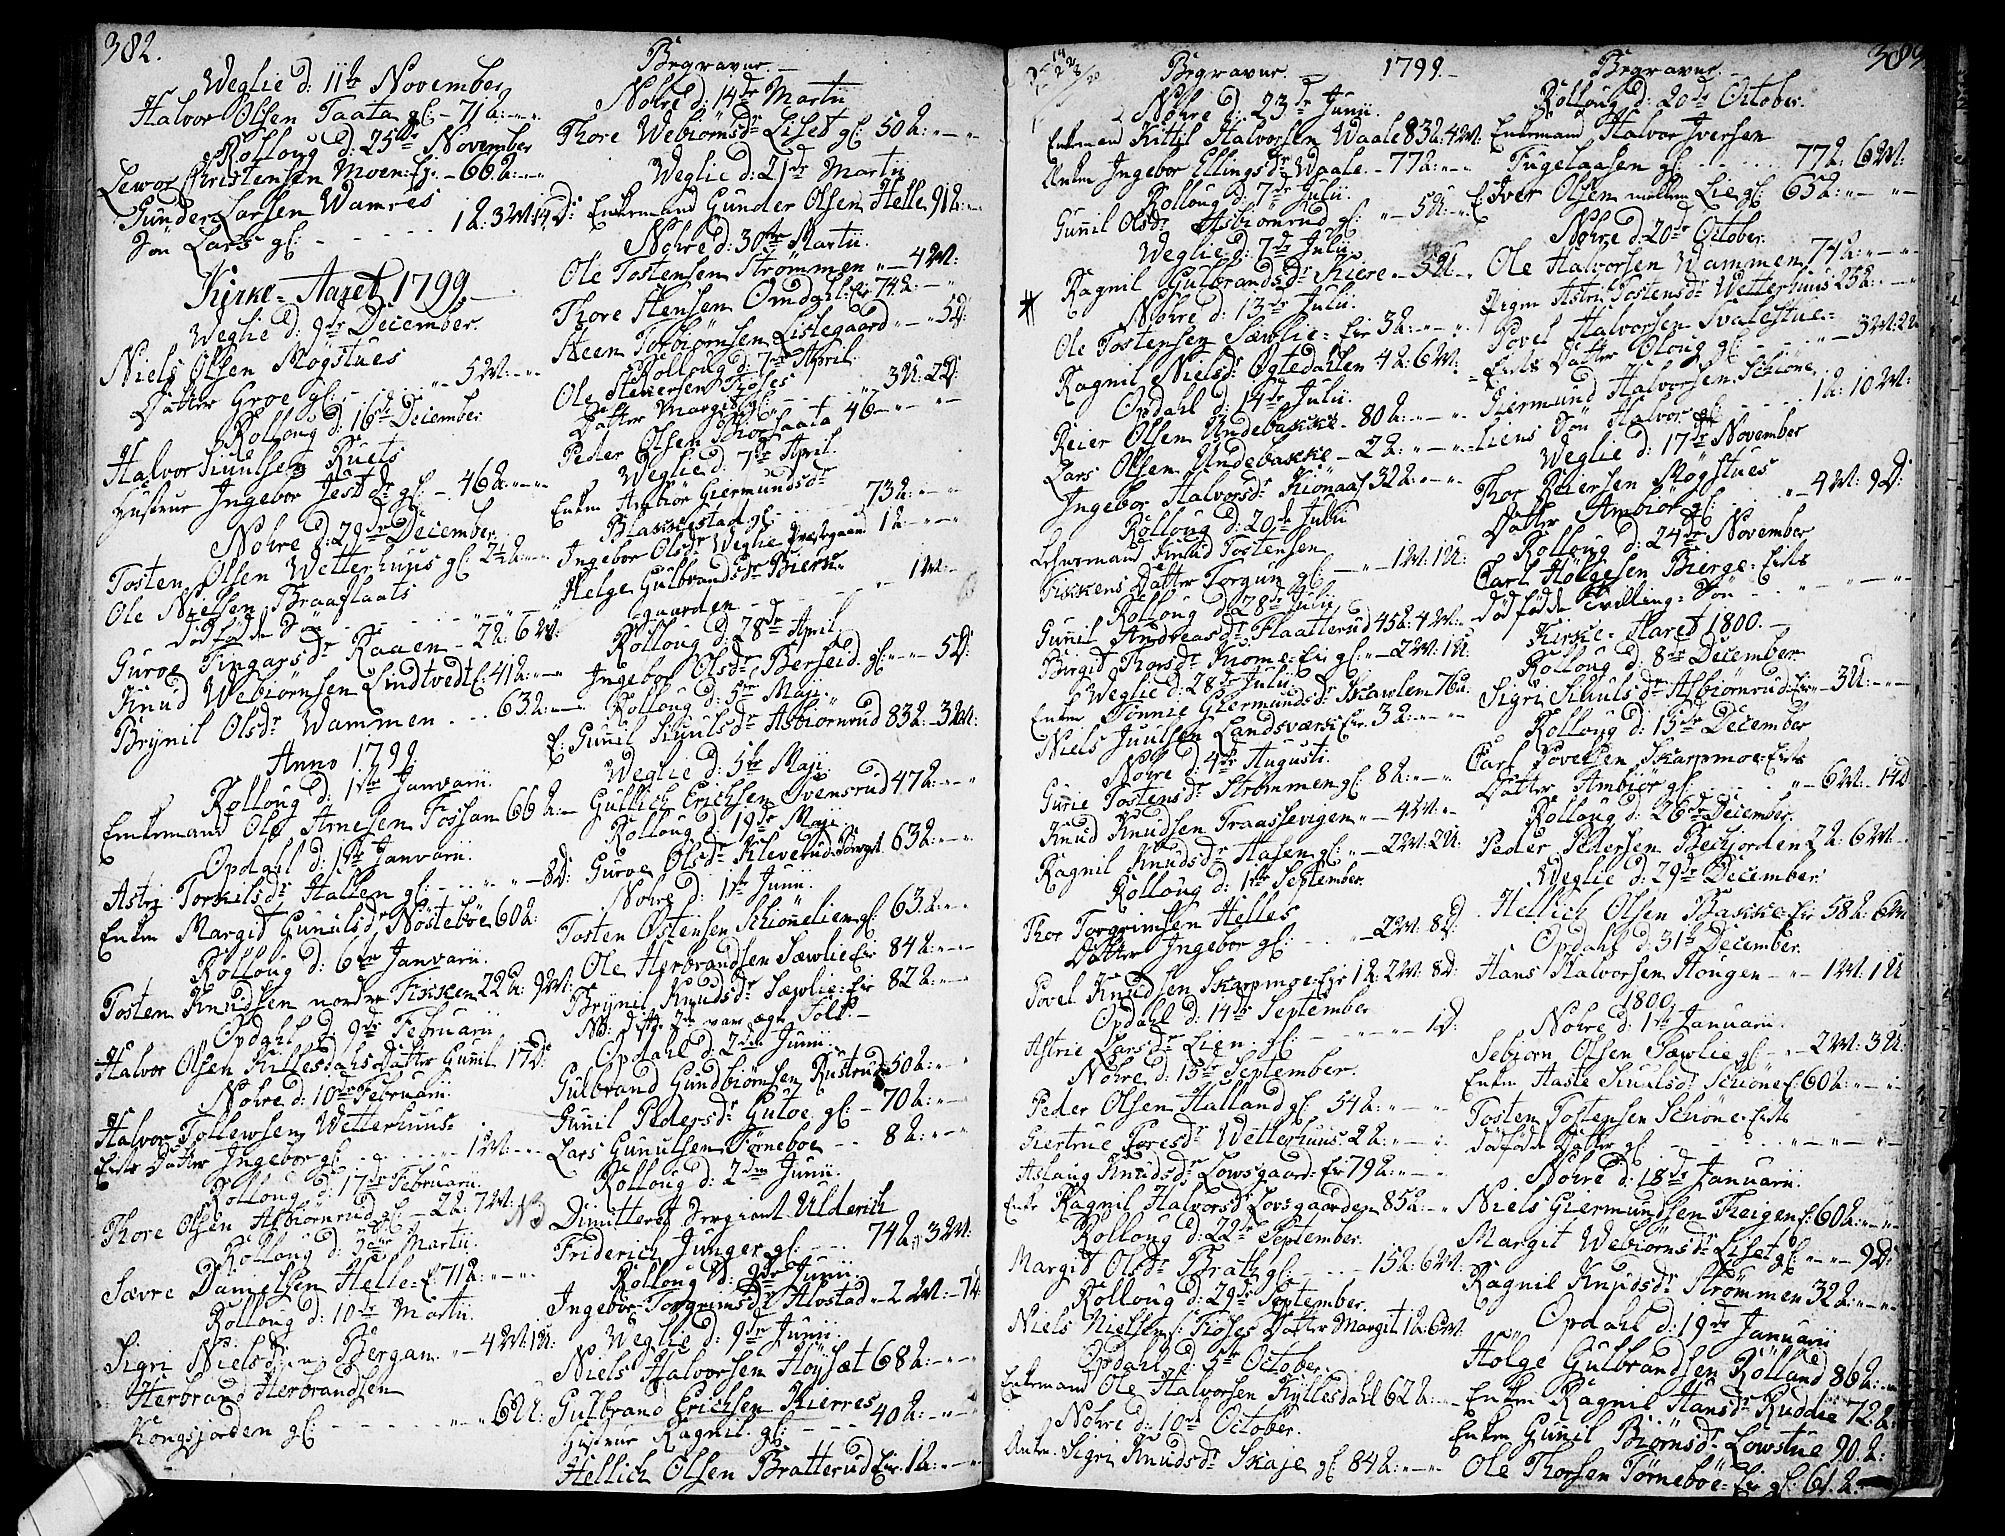 382.
Weglie d: 11te November
Halvor Olsen Taata gl: - 71 A: - -
Rolloug d: 25de November
Lewor Christensen Moen: Ejr - 66 A: - -
Gunder Larsen Wamres
Søn Lars gl: - - - - 1 A: 3 W: 4 D:
Kirke-Aaret 1799
Weglie d: 9de December.
Niels Olsen Mogstues
Datter Groe gl: - - - - 5 W: - -
Rolloug d: 16de December
Halvor Knutsen Ruets
Hustrue Ingebor Jest dr gl - 46 A: - -
Nohre d: 29de December
Tosten Olsen Wetterhuus gl: 2½ A: - -
Ole Nielsen Braaflaats
dødfødde Søn - - - -
Guroe Tingarsdr Raaen - 72: 6 W:
Knud Webiørnsen Lindtvedt E: 41 A: - -
Brynil Olsdr Wammen - - 63 A: - -
Anno 1799
Rolloug d: 1ste Januarii.
Enkemand Ole Arnesen Fossan 66 A: -
Opdahl d: 1ste Januarii.
Astri Torkilsdr Hallen gl: - - - 8 D:
Enken Margit Gunulsdr Nøstebøe 60 A:
Rolloug d: 6te Januarii.
Tosten Knudsen nordre Fikken 22 A: 9 W:
Opdahl d: 9de Februarii
Halvor Olsen Killesdals Datter Gunil 17 D:
Nohre d: 10de Februarii.
Halvor Tollewsen Wetterhuus-
Eiers Datter Ingebor gl: - - - 1 W: - -
Rolloug d: 17de Februarii.
Thore Olsen Asbiørnrud gl: - 2 A: 7 W:
Rolloug d: 3die Martii.
Sævre Danielsen Helle: E: 71 A: - -
Rolloug d: 10de Martii.
Sigri Nielsdr Bergan - 4 W: 1 A:
Herbrand Herbrandsen
Kongsjorden gl: - - - - 62 A:
Begravne -
Nohre d: 14de Martii
Thore Webiørnsdr Liset gl: 50 A: - -
Weglie d: 21de Martii
Enkemand Gunder Olsen Helle 91 A: -
Nohre d: 30te Martii.
Ole Tostensen Strømmen - 4 W:
Thore Stensen Omdahl: Eir 74 A: - -
Steen Torbiørnsen Listegaard - - 5 D:
Rolloug d: 7de April.
Ole Steuersen Føses
Datter Margit gl: - - - 3 A: 2 D:
Peder Olsen Thorsaata 46 - - -
Weglie d: 7de April.
Enken Ambiør Giermundsdr
Blakkestad gl: - - - 73 A: - -
Ingebor Olsdr Weglie Præstgaard 1 A: - -
Helge Gulbrandsdr Biern-
gaarden - - - - 1 W: -
Rolloug d: 28de April
Ingebor Olsdr Berseid gl: - - 5 D:
Rolloug d: 5te Maji
E: Gunil Knulsdr Asbiørnrud 83 A: - 3 W:
Weglie d: 5te Maji.
Gullich Erichsen Ovensrud 47 A: - -
Rolloug d: 19de Maji
Guroe Olsdr Kleverud Børgl 63 A: - -
Nohre d: 1ste Junii.
Tosten Østensen Schionnelien gl: 63 A: - -
Ole Herbrandsen Sævlie Eir 84 A: - -
Brynil Knudsdr Sævlie: Eir 82 A: - -
NB: disse 2de var ægte Folk: -
Opdahl d: 2den Junii.
Gulbrand Gundbiørnsen Rustrud 50 A: - -
Gunil Pedersdr Gutoe gl: - 70 A: - -
Lars Gunulsen Tørneboe - - 8 A: - -
Rolloug d: 2den Junii.
NB Dimitteret Sergiant Ulderich
Friderich Junger gl: - - 74 A: 3 W:
Rolloug d: 9de Junii.
Ingebor Torgrimsdr Alvstad - 2 W: - 7 A:
Weglie d: 9de Junii
Niels Halvorsen Høysæt 68 A: - -
Gulbrand Erichsen Kierres
Hustrue Ragnil gl: - - - 40 A: - -
Hellich Olsen Bratterud Eir - 1 A: - -
Begravne. - 1799. -
Nohre d: 23de Junii.
Enkemand Kittil Halvorsen Waale 83 A: 4 W:
Enken Ingebor Ellingsdr Waale - 77 A: - -
Rolloug d: 7de Julii.
Gunil Olsdr Asbiørnrud gl: - 5 A: -
Weglie d: 7de Julii
Ragnil Gulbrandsdr Kiere - 5 A: -
Nohre d: 13de Julii.
Ole Tostensen Sævlie: Eir 3 A: - -
Ragnil Nielsdr Øgtedahlen 4 A: 6 W:
Opdahl d: 14de Julii.
Reier Olsen Undebakke - 80 A: - -
Lars Olsen Undebakke - 2 A: - -
Ingebor Halvorsdr Kiønaas 32 A: - -
Rolloug d: 20de Julii
Lehnsmand Knud Tostensen
Fikkens Datter Torgun gl: - - 1 W: 1 A:
Rolloug d: 28de Julii
Gunil Andreasdr Flaatterud 45 A: 4 W:
Birgit Thorsdr Krome: Eir gl: - 2 W: 1 A:
Weglie d: 28de Julii
Enken Tonnie Giermundsdr Skawlem 76 A:
Niels Juulsen Landsværk Eir: 3 A: - -
Nohre d: 4de Augusti.
Gunie Tostensdr Strømmen gl: 8 A: - -
Knud Knudsen Traassevigen - 4 W: -
Ragnil Knudsdr Hasen gl: - 2 W: 2 A:
Rolloug d: 1ste September.
Thor Torgrimsen Helles
Datter Ingebor gl: - - - 2 W: 8 D:
Povel Knudsen Skarpmoe: Eir 1 A: 2 W: 8 D:
Opdahl d: 14de September
Astrie Larsdr Lien: gl: - - - 1 D:
Nohre d: 15de September.
Peder Olsen Halland gl: 54 A: - -
Giertrue Toresdr Wetterhuus: 2 A: - -
Aslaug Knudsdr Lowsgaard: Eir: 79 A: - -
Enke Ragnil Halvorsdr Lovsgaarden 85 A: - -
Rolloug d: 22de September.
Margit Olsdr Brath gl: - - 15 A: 6 W:
Rolloug d: 29de September.
Niels Nielsen s: Føses Datter Margit 1 A: 6 W:
Opdahl d: 5te October
Enkemand Ole Halvorsen Kyllesdahl 62 A: - -
Nohre d: 10de October.
Enken Sigri Knudsdr Skaje gl: 84 A: - -
Begravne. 383
Rolloug d: 20de October.
Enkemand Halvor Iversen
Fugelaasen gl: - - - 77 A: 6 W:
E: Iver Olsen mellem Lie gl: 65 A: - -
Nohre d: 20de October.
Ole Halvorsen Wammen 74 A: - -
Pigen Astri Tostensdr Wetterhuus 25 A: - -
Povel Halvorsen Svalestue-
Eiers Datter Oloug gl: - - - 3 W: 2 A:
Giermund Halvorsen Schiøne
Liens Søn Halvor gl: - - 1 A: 10 W:
Weglie d: 17de November
Thor Reiersen Mogstues
Datter Ambiør gl: - - - 4 W: 9 D:
Rolloug d: 24de November
Carl Holgesen Bierge: Eiers
dødfødde Tvilling: Søn - - - -
Kirke-Aaret 1800. -
Rolloug d: 8de December.
Sigri Knulsdr Asbiørnrud: Eir - 3 A: - -
Rolloug d: 15de December
Carl Povelsen Skarpmoe: Eiers
Datter Ambiør gl: - - - 6 W: 14 D:
Rolloug d: 26de December.
Peder Pedersen Bechjorden 2 A: 6 W:
Weglie d: 29de December.
Hellich Olsen Bakke Eir 58 A: 6 W:
Opdahl d: 31te December.
Hans Halvorsen Hougen - - 1 W: 1 A:
1800.
Nohre d: 1ste Januarii.
Sebiorn Olsen Sævlie gl: - - 2 W: 3 A:
Enken Aaste Knulsdr Schiøne E: 60 A: - -
Tosten Tostensen Schøne: Eiers
dødfødde Datter gl: - - - -
Nohre d: 18de Januarii.
Niels Giermundsen Theigen E: 60 A: - -
Margit Webiørnsdr Liset gl: - - 9 D:
Ragnil Knudsdr Strømmen 32 A: - -
Opdahl d: 19de Januarii
Holge Gulbrandsen Rolland 86 A: -
Enken Ragnil Hansdr Ruddie 72 A:
Enken Gunil Biørnsdr Lowstue 90 A:
Ole Thorsen Tørneboe: Eir gl: 61 A: -